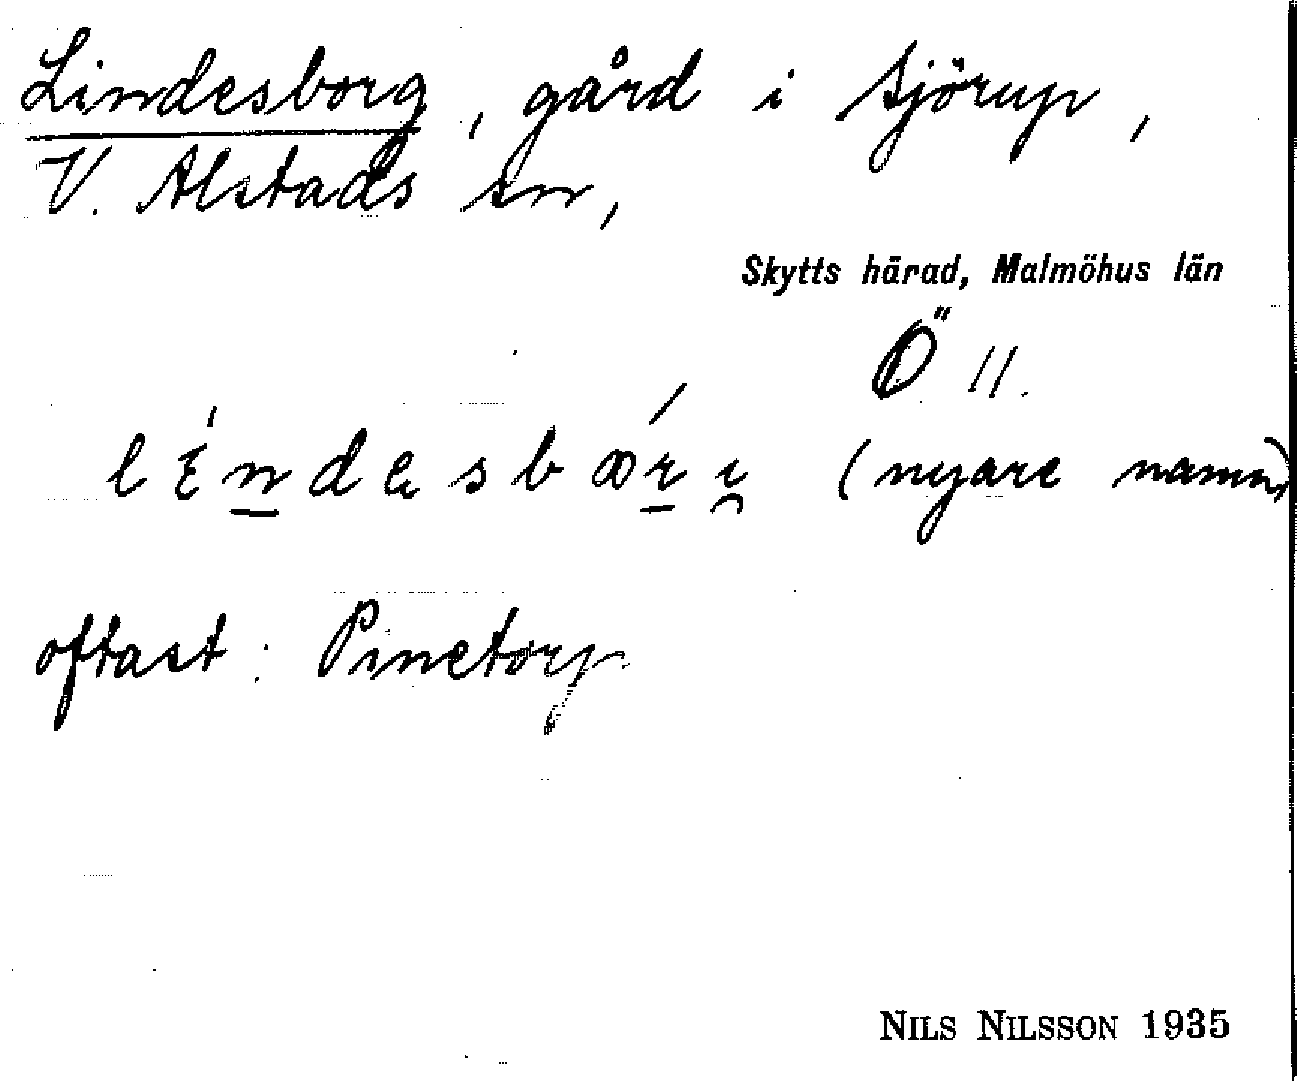 Lindesborg, gård i Sjörup,
V. Alstads sn,
Skytts härad, Malmöhus län
Ö 11.
(nyare namn)
oftast: Pinetorp
NILS NILSSON 1935